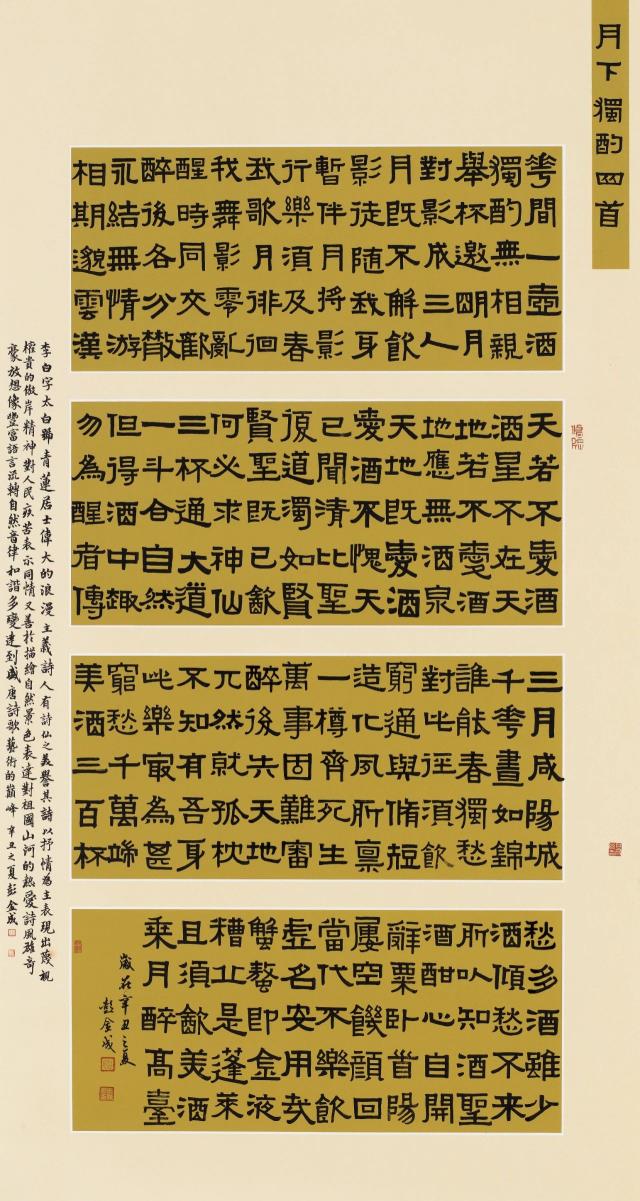 月下獨酌四首
花間一壺酒
獨酌無相親
舉杯邀朙月
對影成三人
月既不解飲
影徒隨我身
暫伴月將影
行樂須及春
我歌月徘徊
我舞影零亂
醒時同交歡
醉後各分散
永結無情游
相期邈雲漢
天若不愛酒
酒星不在天
地若不愛酒
地應無酒泉
天地既愛酒
愛酒不愧天
已聞清比聖
復道濁如賢
賢聖既已飲
何必求神仙
三杯通大道
一斗合自然
但得酒中趣
勿為醒者傳
三月咸陽城
千花晝如錦
誰能春獨愁
對此徑須飲
窮通與脩短
造化夙所稟
一樽齊死生
萬事固難審
醉後失天地
兀然就孤枕
不知有吾身
此樂最為甚
窮愁千萬端
美酒三百杯
愁多酒雖少
酒傾愁不來
所以知酒聖
酒酣心自開
辭粟臥首陽
屢空饑顏回
當代不樂飲
虛名安用哉
蟹螯即金液
糟丘是蓬萊
且須飲美酒
乘月醉高臺
歲在辛丑之夏
彭金成
李白字太白號青蓮居士偉大的浪漫主義詩人有詩仙之美譽其詩以抒情為主表現出蔑視
權貴的傲岸精神對人民疾苦表示同情又善於描繪自然景色表達對祖國山河的熱愛詩風雄奇
豪放想像豐富語言流轉自然音律和諧多變達到盛唐詩歌藝術的巔峰 辛丑之夏彭金成